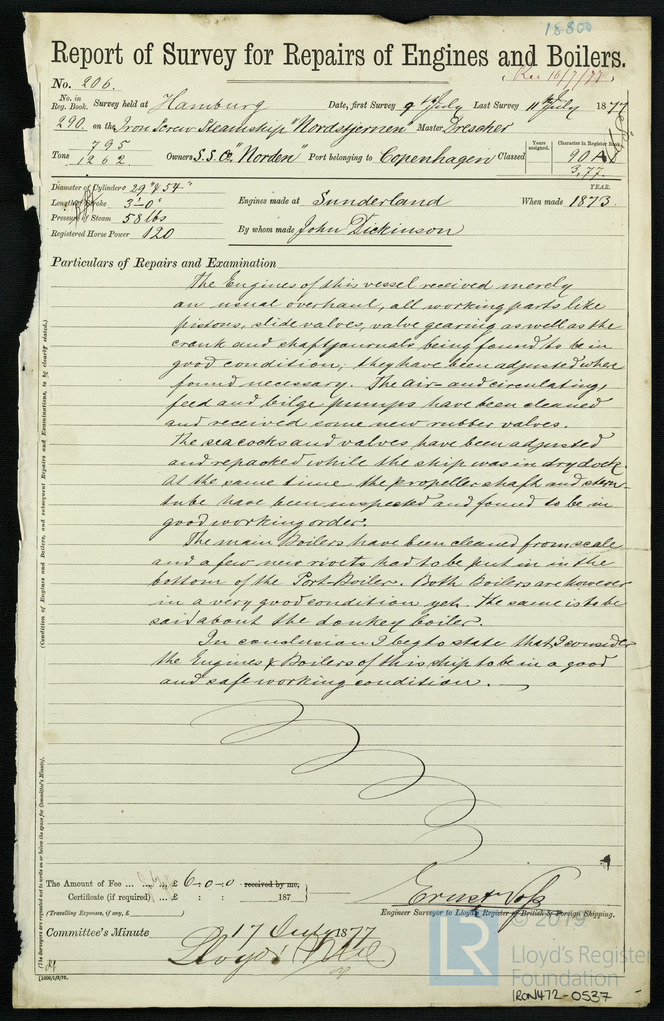 18800
Report of Survey for Repairs of Engines and Boilers.
No. 206. Rec 16/7/77
No. in Reg. Book. Survey held at Hamburg Date, first Survey 9th July Last Survey 11th July 1877
290. on the Iron Screw Steamship "Nordstjernen" Master Drescher
Tons 795 1262 Owners S.S. Co. "Norden" Port belonging to Copenhagen Classed Years assigned. Character in Register Book 90 A 3,77.
Diameter of Cylinders 29" & 54" YEAR.
Length of Stroke 3'-0" Engines made at Sunderland When made 1873.
Pressure of Steam 58 lbs
Registered Horse Power 120 By whom made John Dickinson
Particulars of Repairs and Examination
The Engines of this vessel received merely
an usual overhaul, all working parts like
pistons, slide valves, valve gearing as well as the
crank and shaft journals being found to be in
good condition; they have been adjusted where
found necessary. The air- and circulating,
feed and bilge pumps have been cleaned
and received some new rubber valves.
The sea cocks and valves have been adjusted
and repacked while the ship was in dry dock.
At the same time the propeller shaft and stern-
tube have been inspected and found to be in
good working order.
The main Boilers have been cleaned from scale
and a few new rivets had to be put in in the
bottom of the Port-Boiler. Both Boilers are however
in a very good condition yet. The same is to be
said about the donkey boiler.
In conclusion I beg to state that I consider
the Engines & Boilers of this ship to be in a good
and safe working condition. —
(Condition of Engines and Boilers, and subsequent Repairs and Examinations, to be clearly stated.)
(The Surveyors are requested not to write on or below the space for Committee's Minute).
The Amount of Fee ... ... £ 6-0-0 received by me,
Certificate (if required) ... £ : : 187
(Travelling Expenses, if any, £ )
Ernst Voss
Engineer Surveyor to Lloyd's Register of British & Foreign Shipping.
Committee's Minute 17 July 1877
Lloyd's
© 2019
LR
Lloyd's Register
Foundation
IRON472-0537